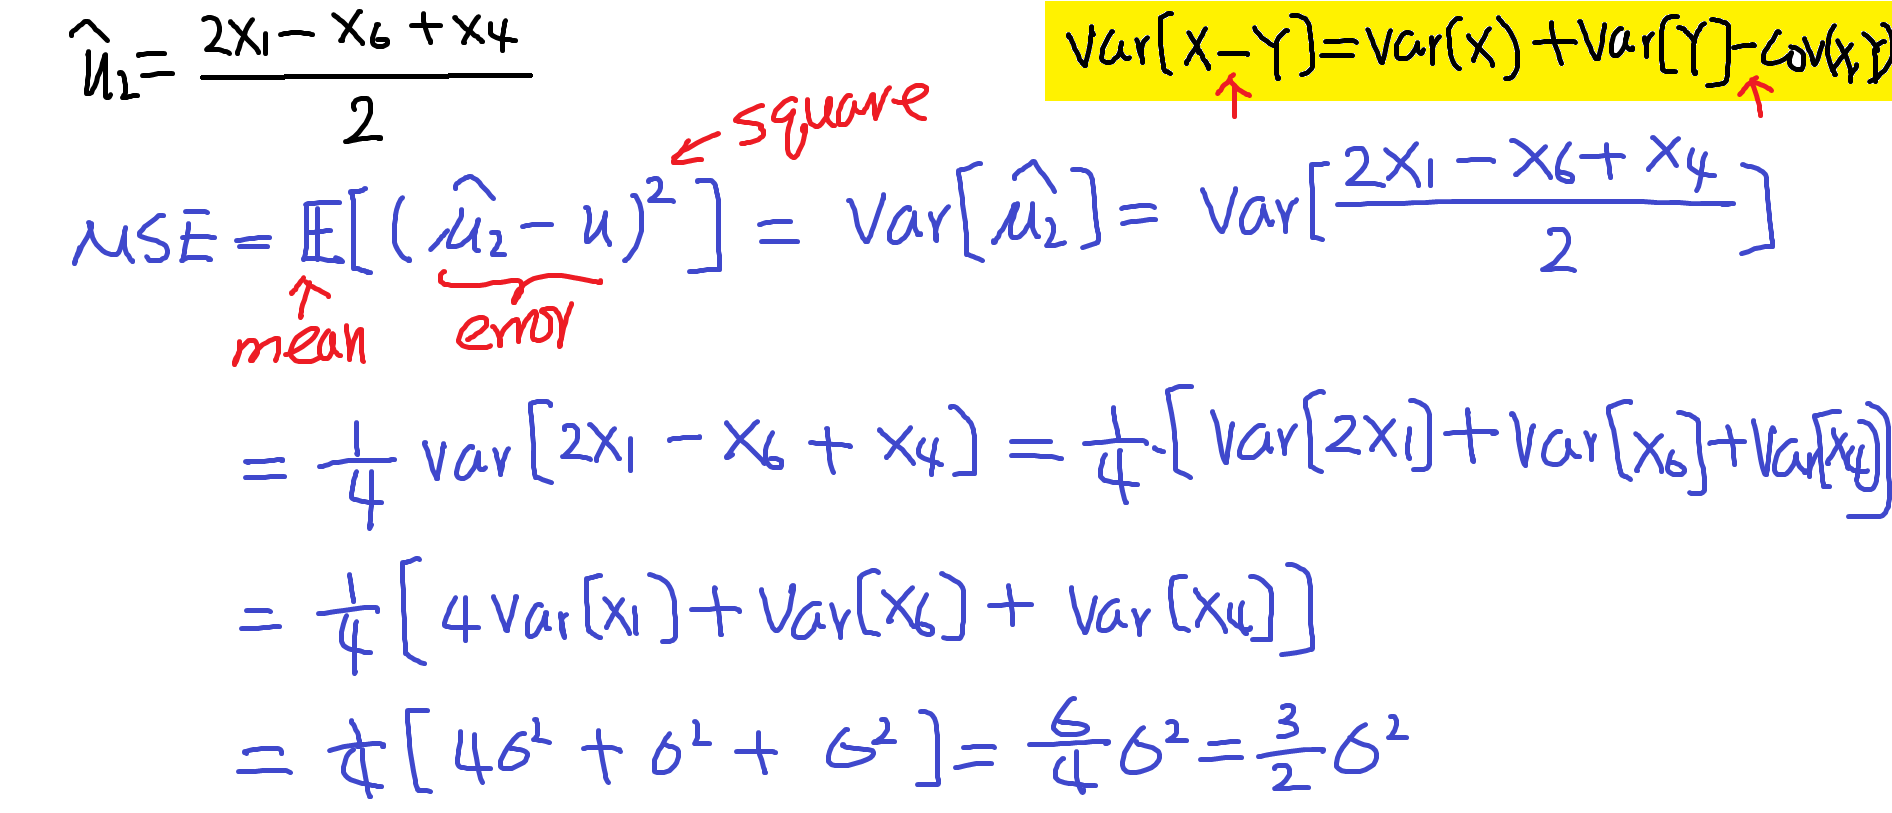 û₂ = (2X₁ - X₆ + X₄) / 2
Var[X-Y] = Var(X) + Var[Y] - Cov(X,Y)
↑ ↑
← square
MSE = 𝔼[(û₂ - u)²] = Var[û₂] = Var[(2X₁ - X₆ + X₄) / 2]
↑ mean
error
= 1/4 Var[2X₁ - X₆ + X₄] = 1/4·[Var[2X₁] + Var[X₆] + Var[X₄]]
= 1/4 [4Var[X₁] + Var[X₆] + Var[X₄]]
= 1/4 [4σ² + σ² + σ²] = 6/4 σ² = 3/2 σ²